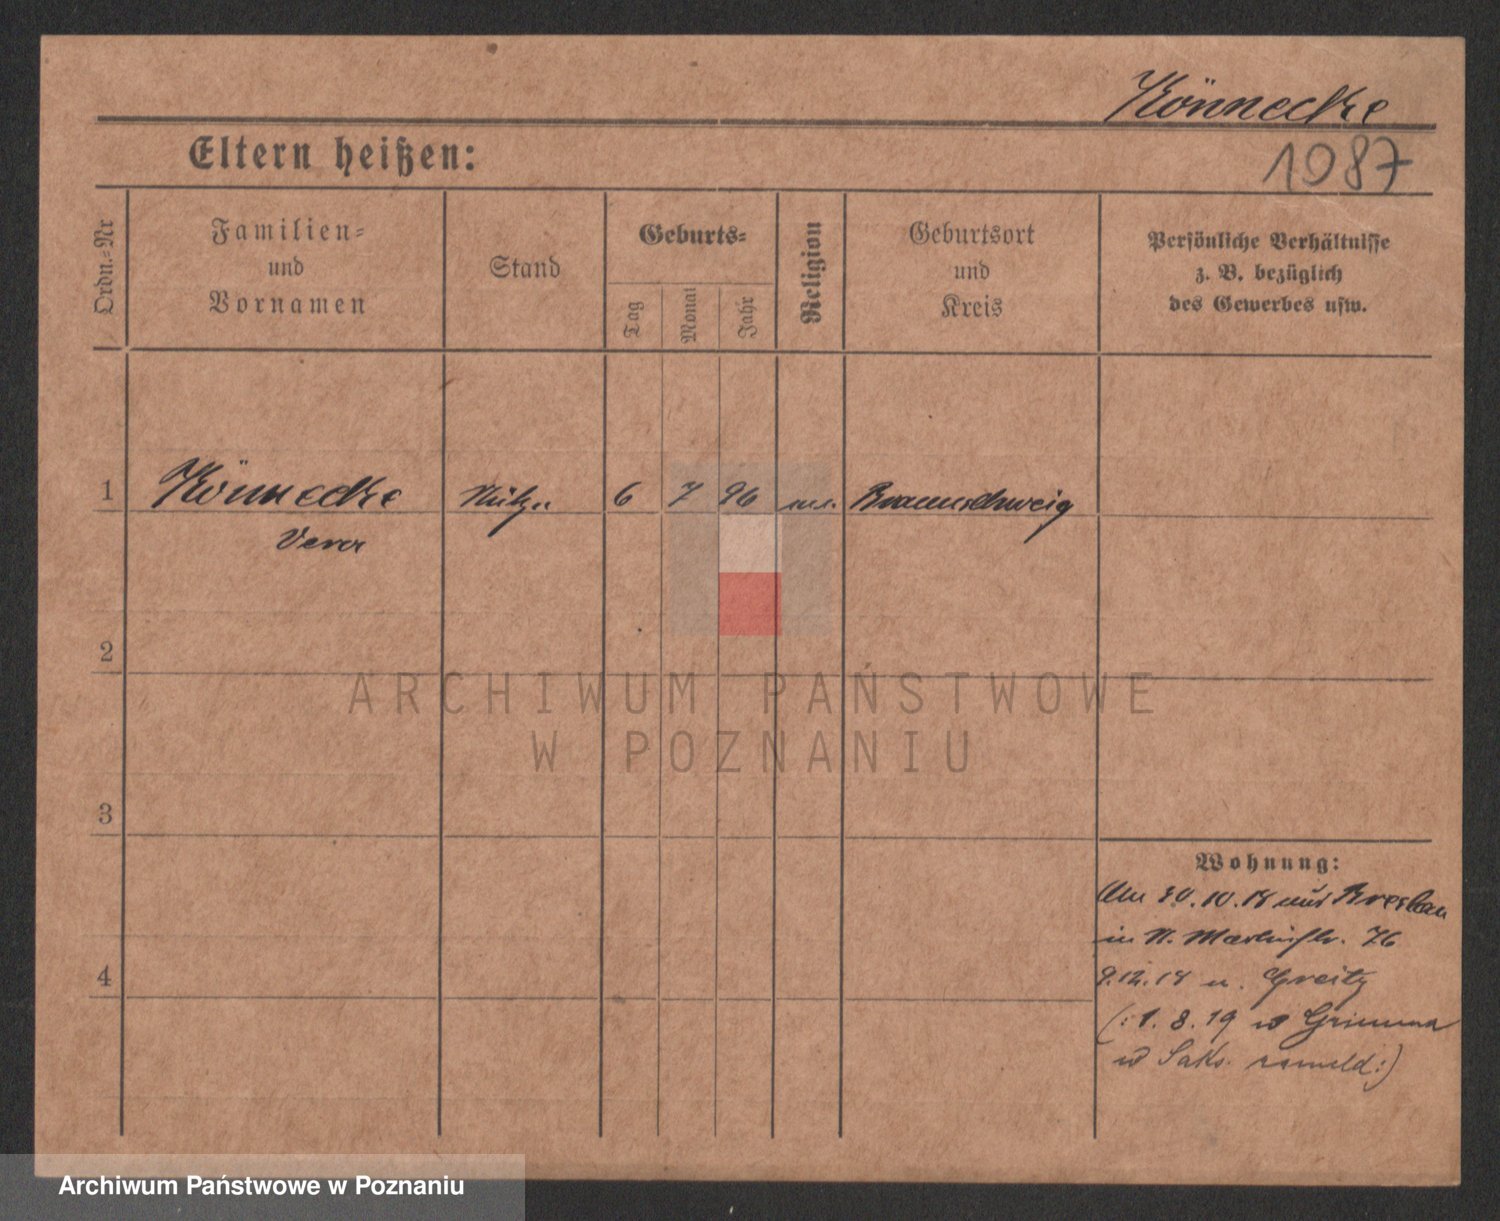 Könnecke
Eltern heißen:
1987
Ordn.-Nr
Familien-
und
Vornamen
Stand
Geburts-
Tag
Monat
Jahr
Religion
Geburtsort
und
Kreis
Persönliche Verhältnisse
z. B. bezüglich
des Gewerbes usw.
1
Könnecke
6
7
96
Braunschweig
Vera
2
ARCHIWUM PAŃSTWOWE
W POZNANIU
3
Wohnung:
Am 30.10.18 aus Breslau
in 76
9.12.18 n. Greitz
(: 1. 8. 19 w Grimma
w Saks. :)
4
Archiwum Państwowe w Poznaniu